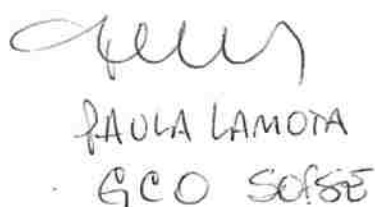 PAULA LAMOTA
GCO SOfSE